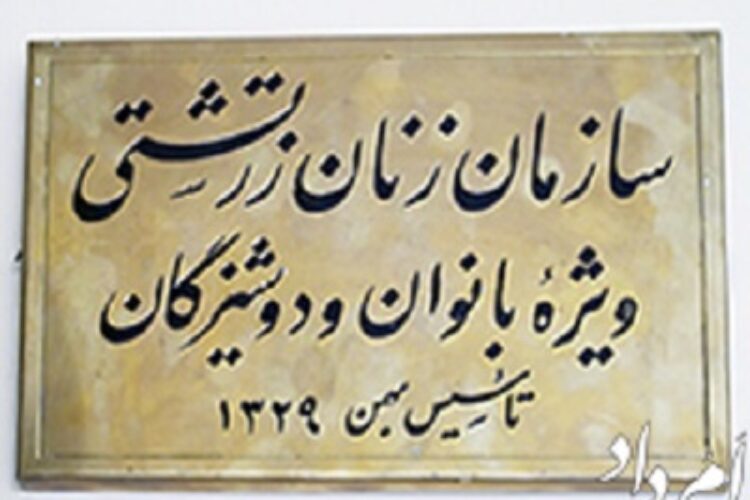 سازمان زنان زرتشتی
ویژهٔ بانوان و دوشیزگان
تأسیس بهمن ۱۳۲۹
اَمرداد